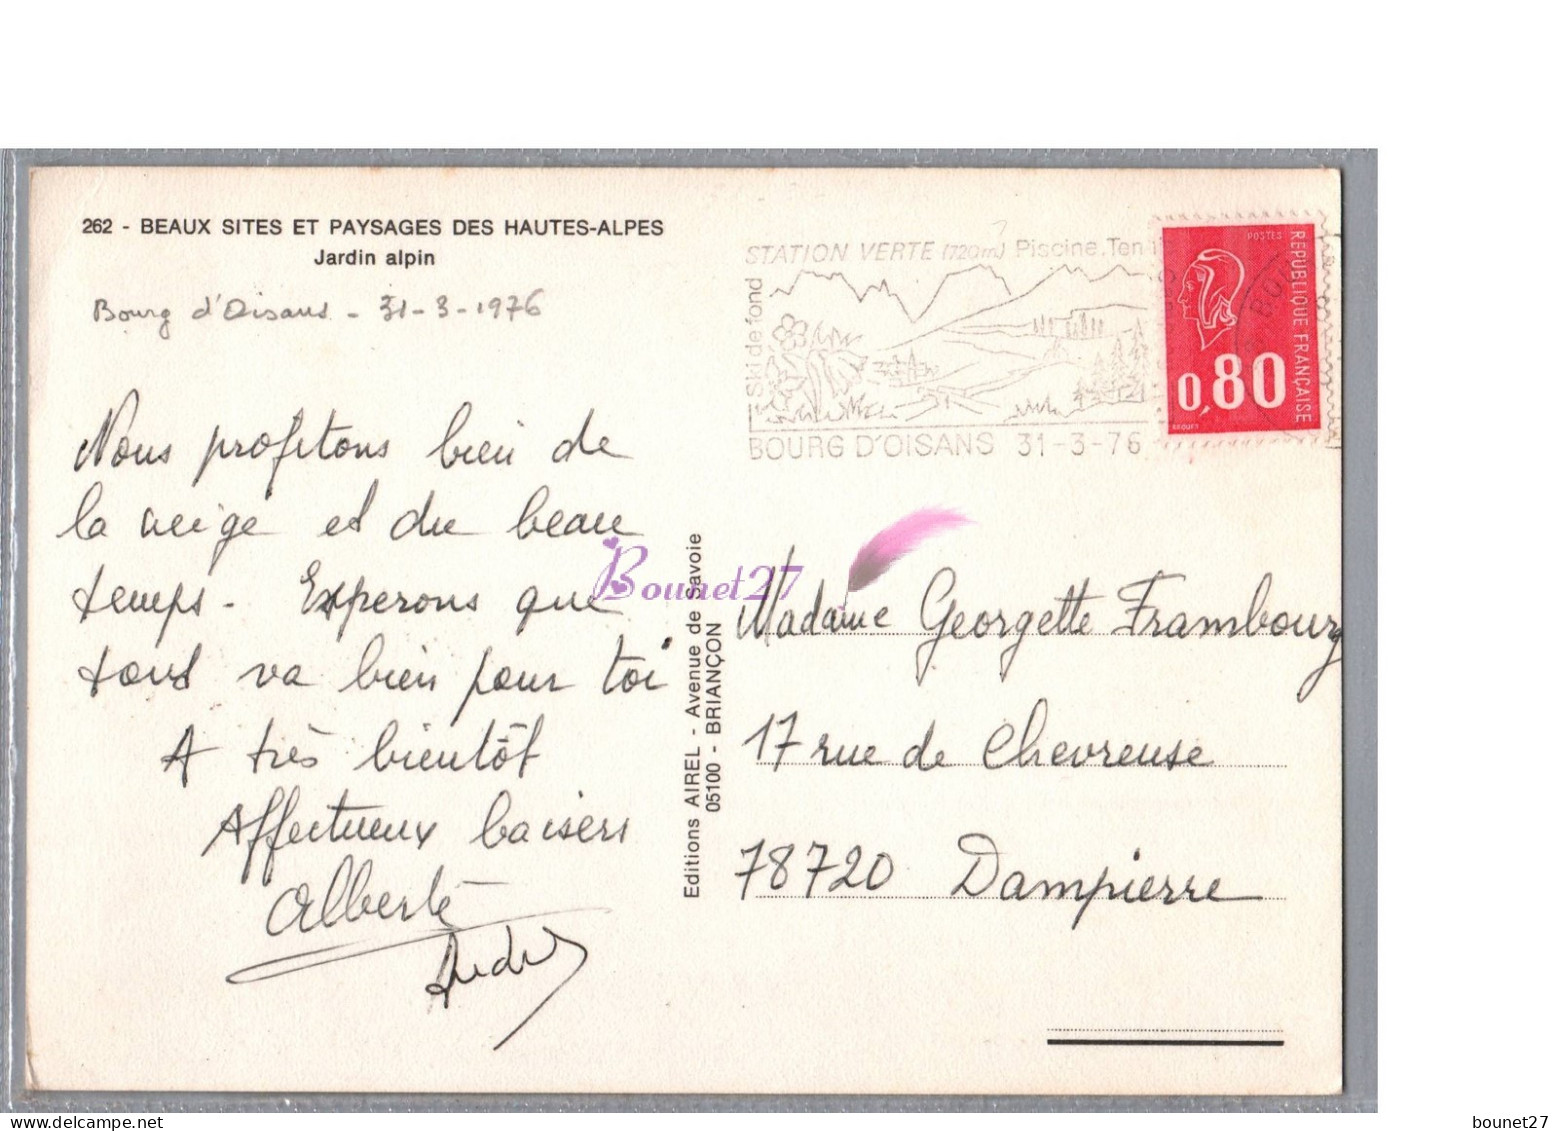 262 - BEAUX SITES ET PAYSAGES DES HAUTES-ALPES
Jardin alpin
Bourg d'Oisans - 31-3-1976
Nous profitons bien de
la neige et du beau
temps - Esperons que
tout va bien pour toi
A très bientôt
Affectueux baisers
Alberte
André
Editions AIREL - Avenue de Savoie
05100 - BRIANÇON
STATION VERTE (720m) Piscine. Tenni
Ski de fond
BOURG D'OISANS 31-3-76
POSTES
REPUBLIQUE FRANÇAISE
0,80
BEQUET
Bounet27
Madame Georgette Frambourg
17 rue de Chevreuse
78720 Dampierre
bounet27